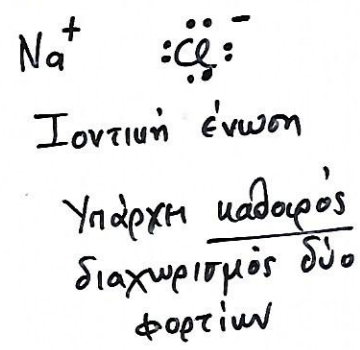 Na⁺ :Cl:⁻
Ιοντική ένωση
Υπάρχη καθαρός
διαχωρισμός δύο
φορτίων